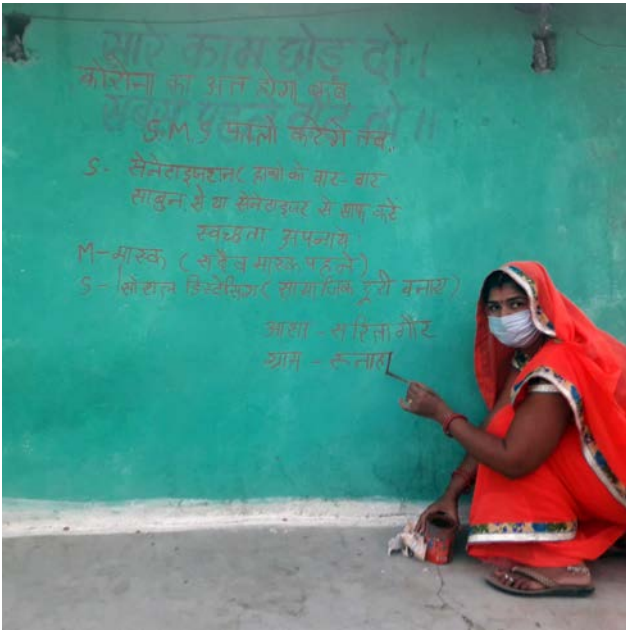 सारे काम छोड़ दो।
कोरोना का अन्त होगा कब
सबसे पहले वोट दो।।
S M S फालो करेंगे तब.
S- सेनेटाइजेशन( हाथों को बार-बार
साबुन से या सेनेटाइजर से साफ करे
स्वच्छता अपनायें
M-मास्क ( सदैव मास्क पहने)
S- सोशल डिस्टेंसिंग( सामाजिक दूरी बनाये)
आशा - सरिता गौर
ग्राम -